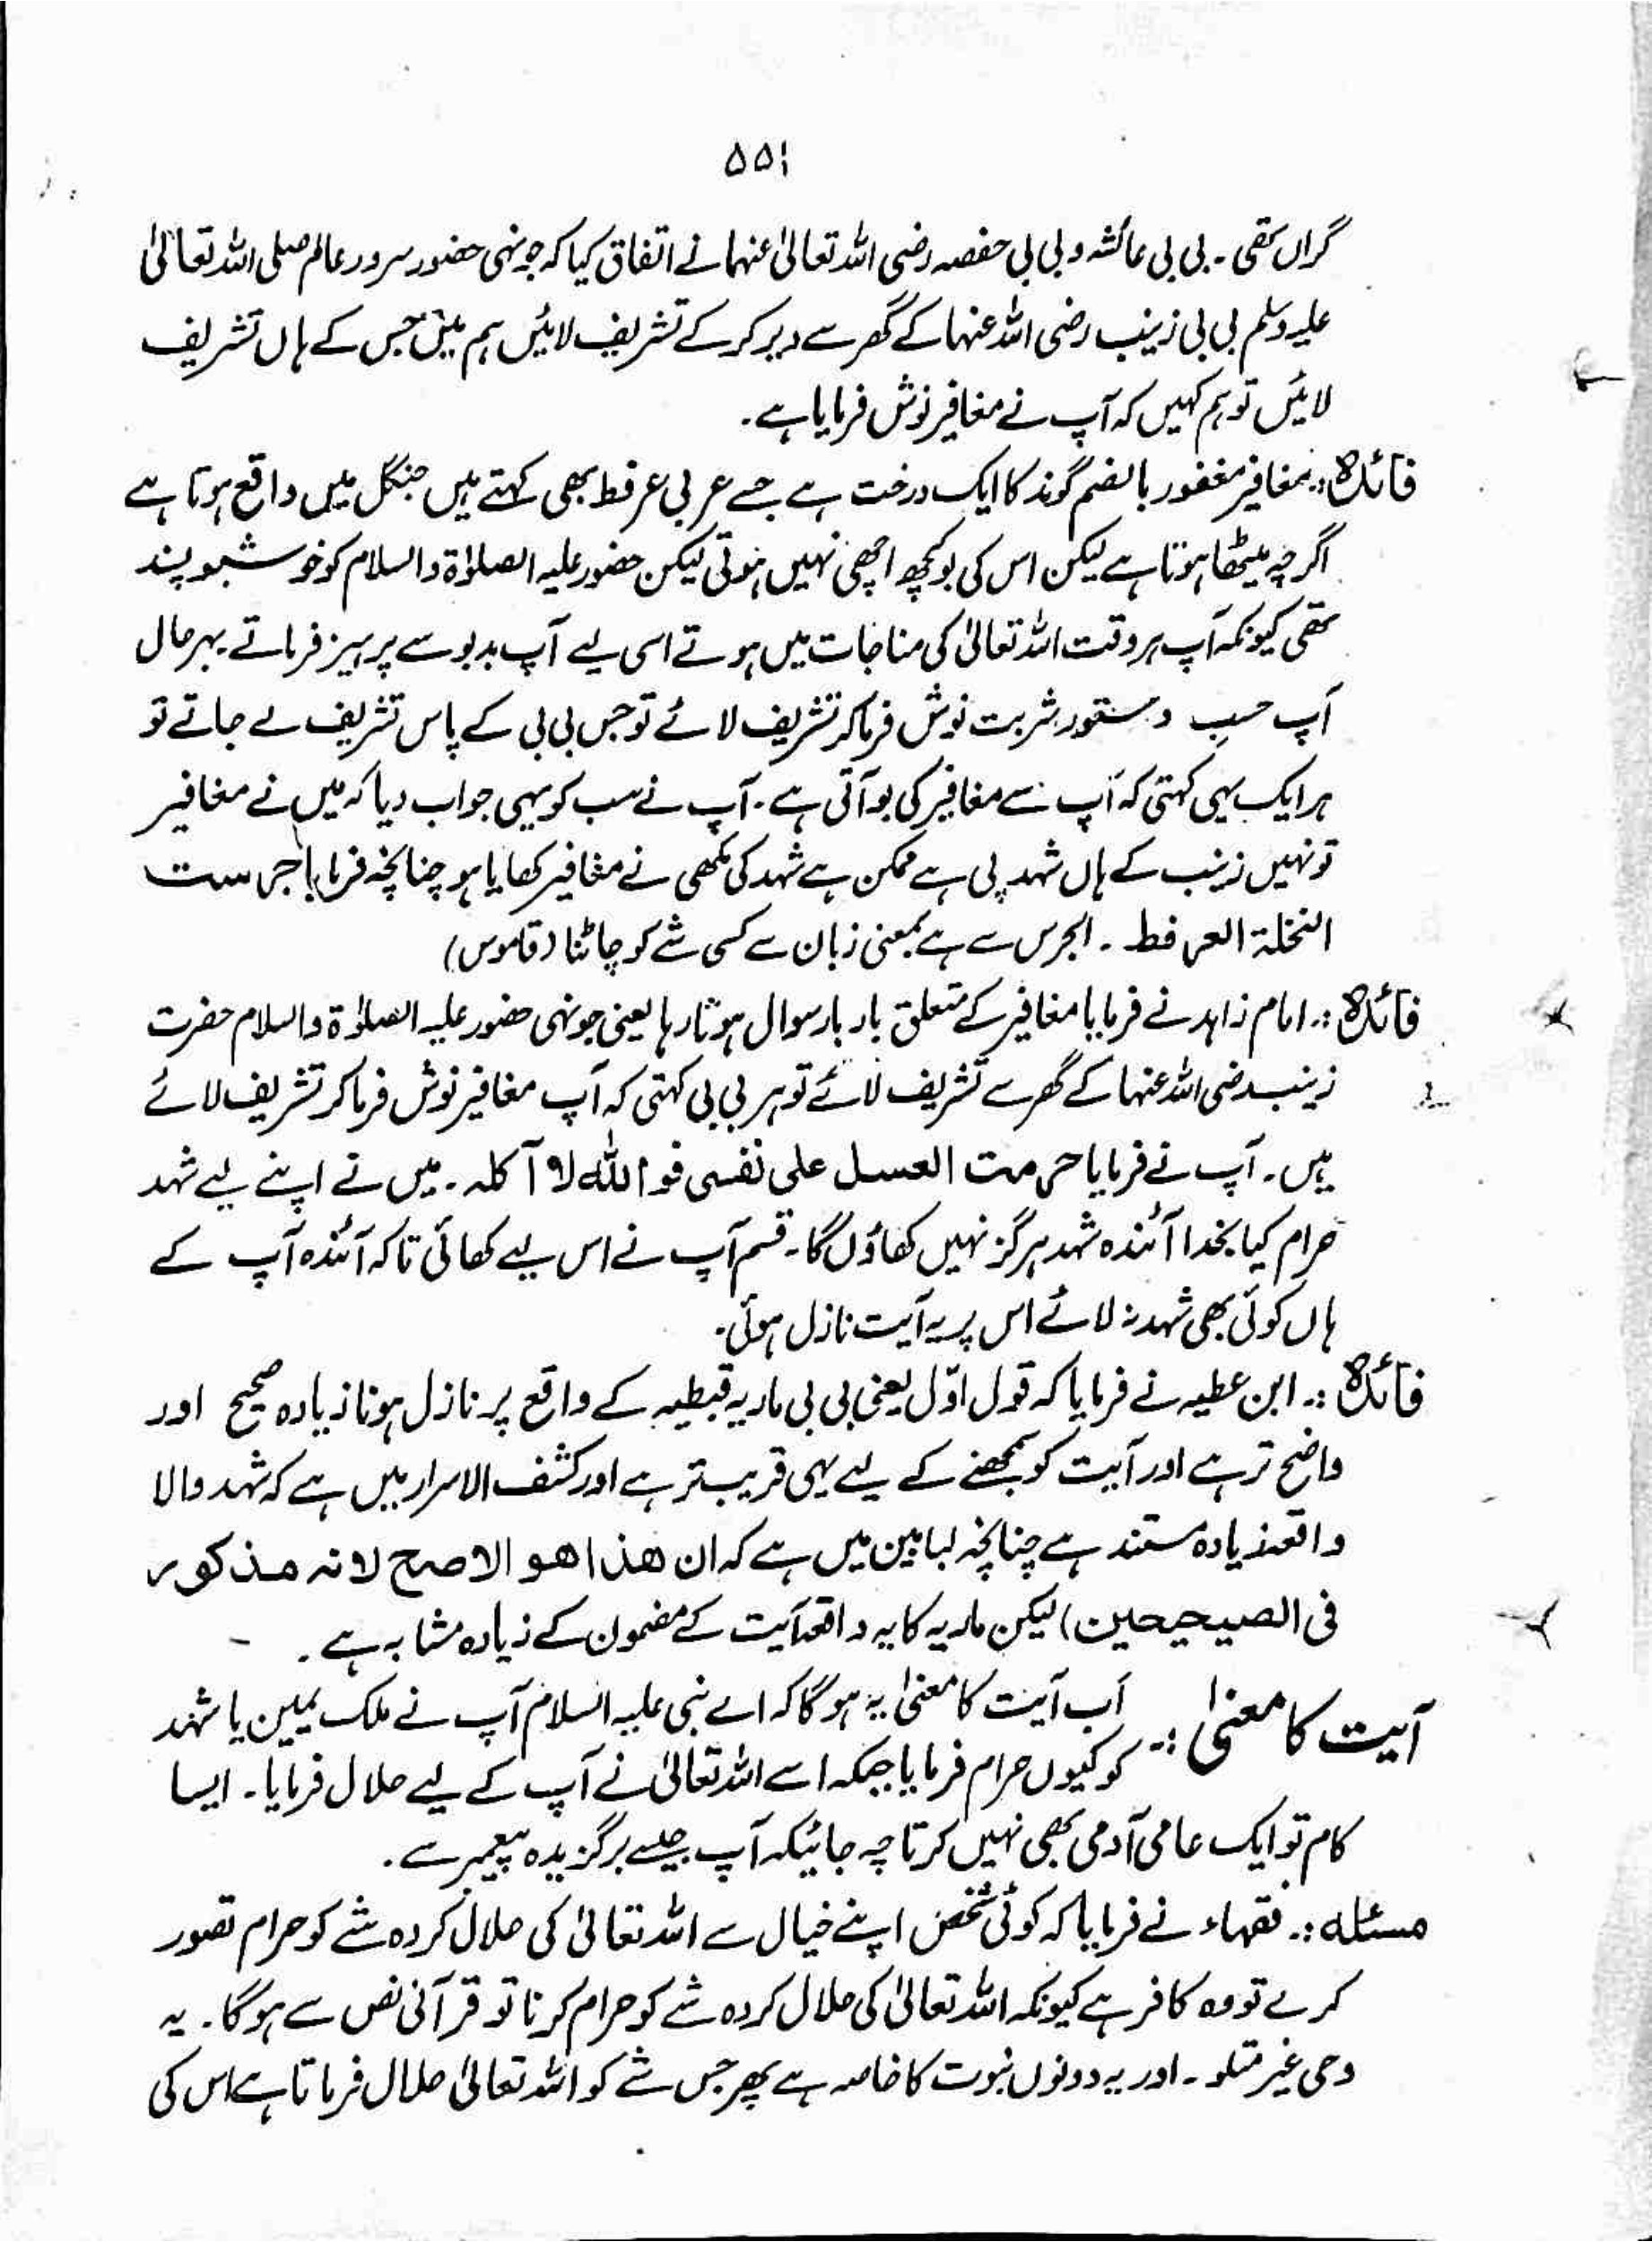 ۵۵۱
گراں تھی ۔ بی بی عائشہ و بی بی حفصہ رضی اللہ تعالیٰ عنہما نے اتفاق کیا کہ جونہی حضور سرور عالم صلی اللہ تعالیٰ
علیہ وسلم بی بی زینب رضی اللہ عنہا کے گھر سے دیر کر کے تشریف لائیں ہم میں جس کے ہاں تشریف
لائیں تو ہم کہیں کہ آپ نے مغافیر نوش فرمایا ہے ۔
فائدہ :۔ مغافیر مغفور بالضم گوند کا ایک درخت ہے جسے عربی عرفط بھی کہتے ہیں جنگل میں واقع ہوتا ہے
اگرچہ میٹھا ہوتا ہے لیکن اس کی بو کچھ اچھی نہیں ہوتی لیکن حضور علیہ الصلوٰۃ والسلام کو خوشبو پسند
تھی کیونکہ آپ ہر وقت اللہ تعالیٰ کی مناجات میں ہوتے اسی لیے آپ بدبو سے پرہیز فرماتے بہرحال
آپ حسبِ دستور شربت نوش فرما کر تشریف لائے تو جس بی بی کے پاس تشریف لے جاتے تو
ہر ایک یہی کہتی کہ آپ سے مغافیر کی بو آتی ہے ۔ آپ نے سب کو یہی جواب دیا کہ میں نے مغافیر
تو نہیں زینب کے ہاں شہد پی ہے ممکن ہے شہد کی مکھی نے مغافیر کھایا ہو چنانچہ فرمایا جرست
النخلۃ العرفط ۔ الجرس سے ہے بمعنی زبان سے کسی شے کو چاٹنا (قاموس)
فائدہ :۔ امام زاہد نے فرمایا مغافیر کے متعلق بار بار سوال ہوتا رہا یعنی جونہی حضور علیہ الصلوٰۃ والسلام حضرت
زینب رضی اللہ عنہا کے گھر سے تشریف لائے تو ہر بی بی کہتی کہ آپ مغافیر نوش فرما کر تشریف لائے
ہیں ۔ آپ نے فرمایا حرمت العسل علی نفسی فواللہ لا آکلہ ۔ میں نے اپنے لیے شہد
حرام کیا بخدا آئندہ شہد ہرگز نہیں کھاؤں گا ۔ قسم آپ نے اس لیے کھائی تاکہ آئندہ آپ کے
ہاں کوئی بھی شہد نہ لائے اس پر یہ آیت نازل ہوئی ۔
فائدہ :۔ ابن عطیہ نے فرمایا کہ قول اوّل یعنی بی بی ماریہ قبطیہ کے واقع پر نازل ہونا زیادہ صحیح اور
واضح تر ہے اور آیت کو سمجھنے کے لیے یہی قریب تر ہے اور کشف الاسرار میں ہے کہ شہد والا
واقعہ زیادہ مستند ہے چنانچہ لبابین میں ہے کہ ان ھذا ھو الاصح لانہ مذکور
فی الصیحیحین) لیکن ماریہ کا یہ واقعہ آیت کے مضمون کے زیادہ مشابہ ہے ۔
آیت کا معنیٰ :۔ اَب آیت کا معنیٰ یہ ہو گا کہ اے نبی علیہ السلام آپ نے ملک یمین یا شہد
کو کیوں حرام فرمایا جبکہ اسے اللہ تعالیٰ نے آپ کے لیے حلال فرمایا ۔ ایسا
کام تو ایک عامی آدمی بھی نہیں کرتا چہ جائیکہ آپ جیسے برگزیدہ پیغمبر سے ۔
مسئلہ :۔ فقہاء نے فرمایا کہ کوئی شخص اپنے خیال سے اللہ تعالیٰ کی حلال کردہ شے کو حرام تصور
کرے تو وہ کافر ہے کیونکہ اللہ تعالیٰ کی حلال کردہ شے کو حرام کرنا تو قرآنی نص سے ہو گا ۔ یہ
وحی غیر متلو ۔ اور یہ دونوں نبوت کا خاصہ ہے پھر جس شے کو اللہ تعالیٰ حلال فرماتا ہے اس کی